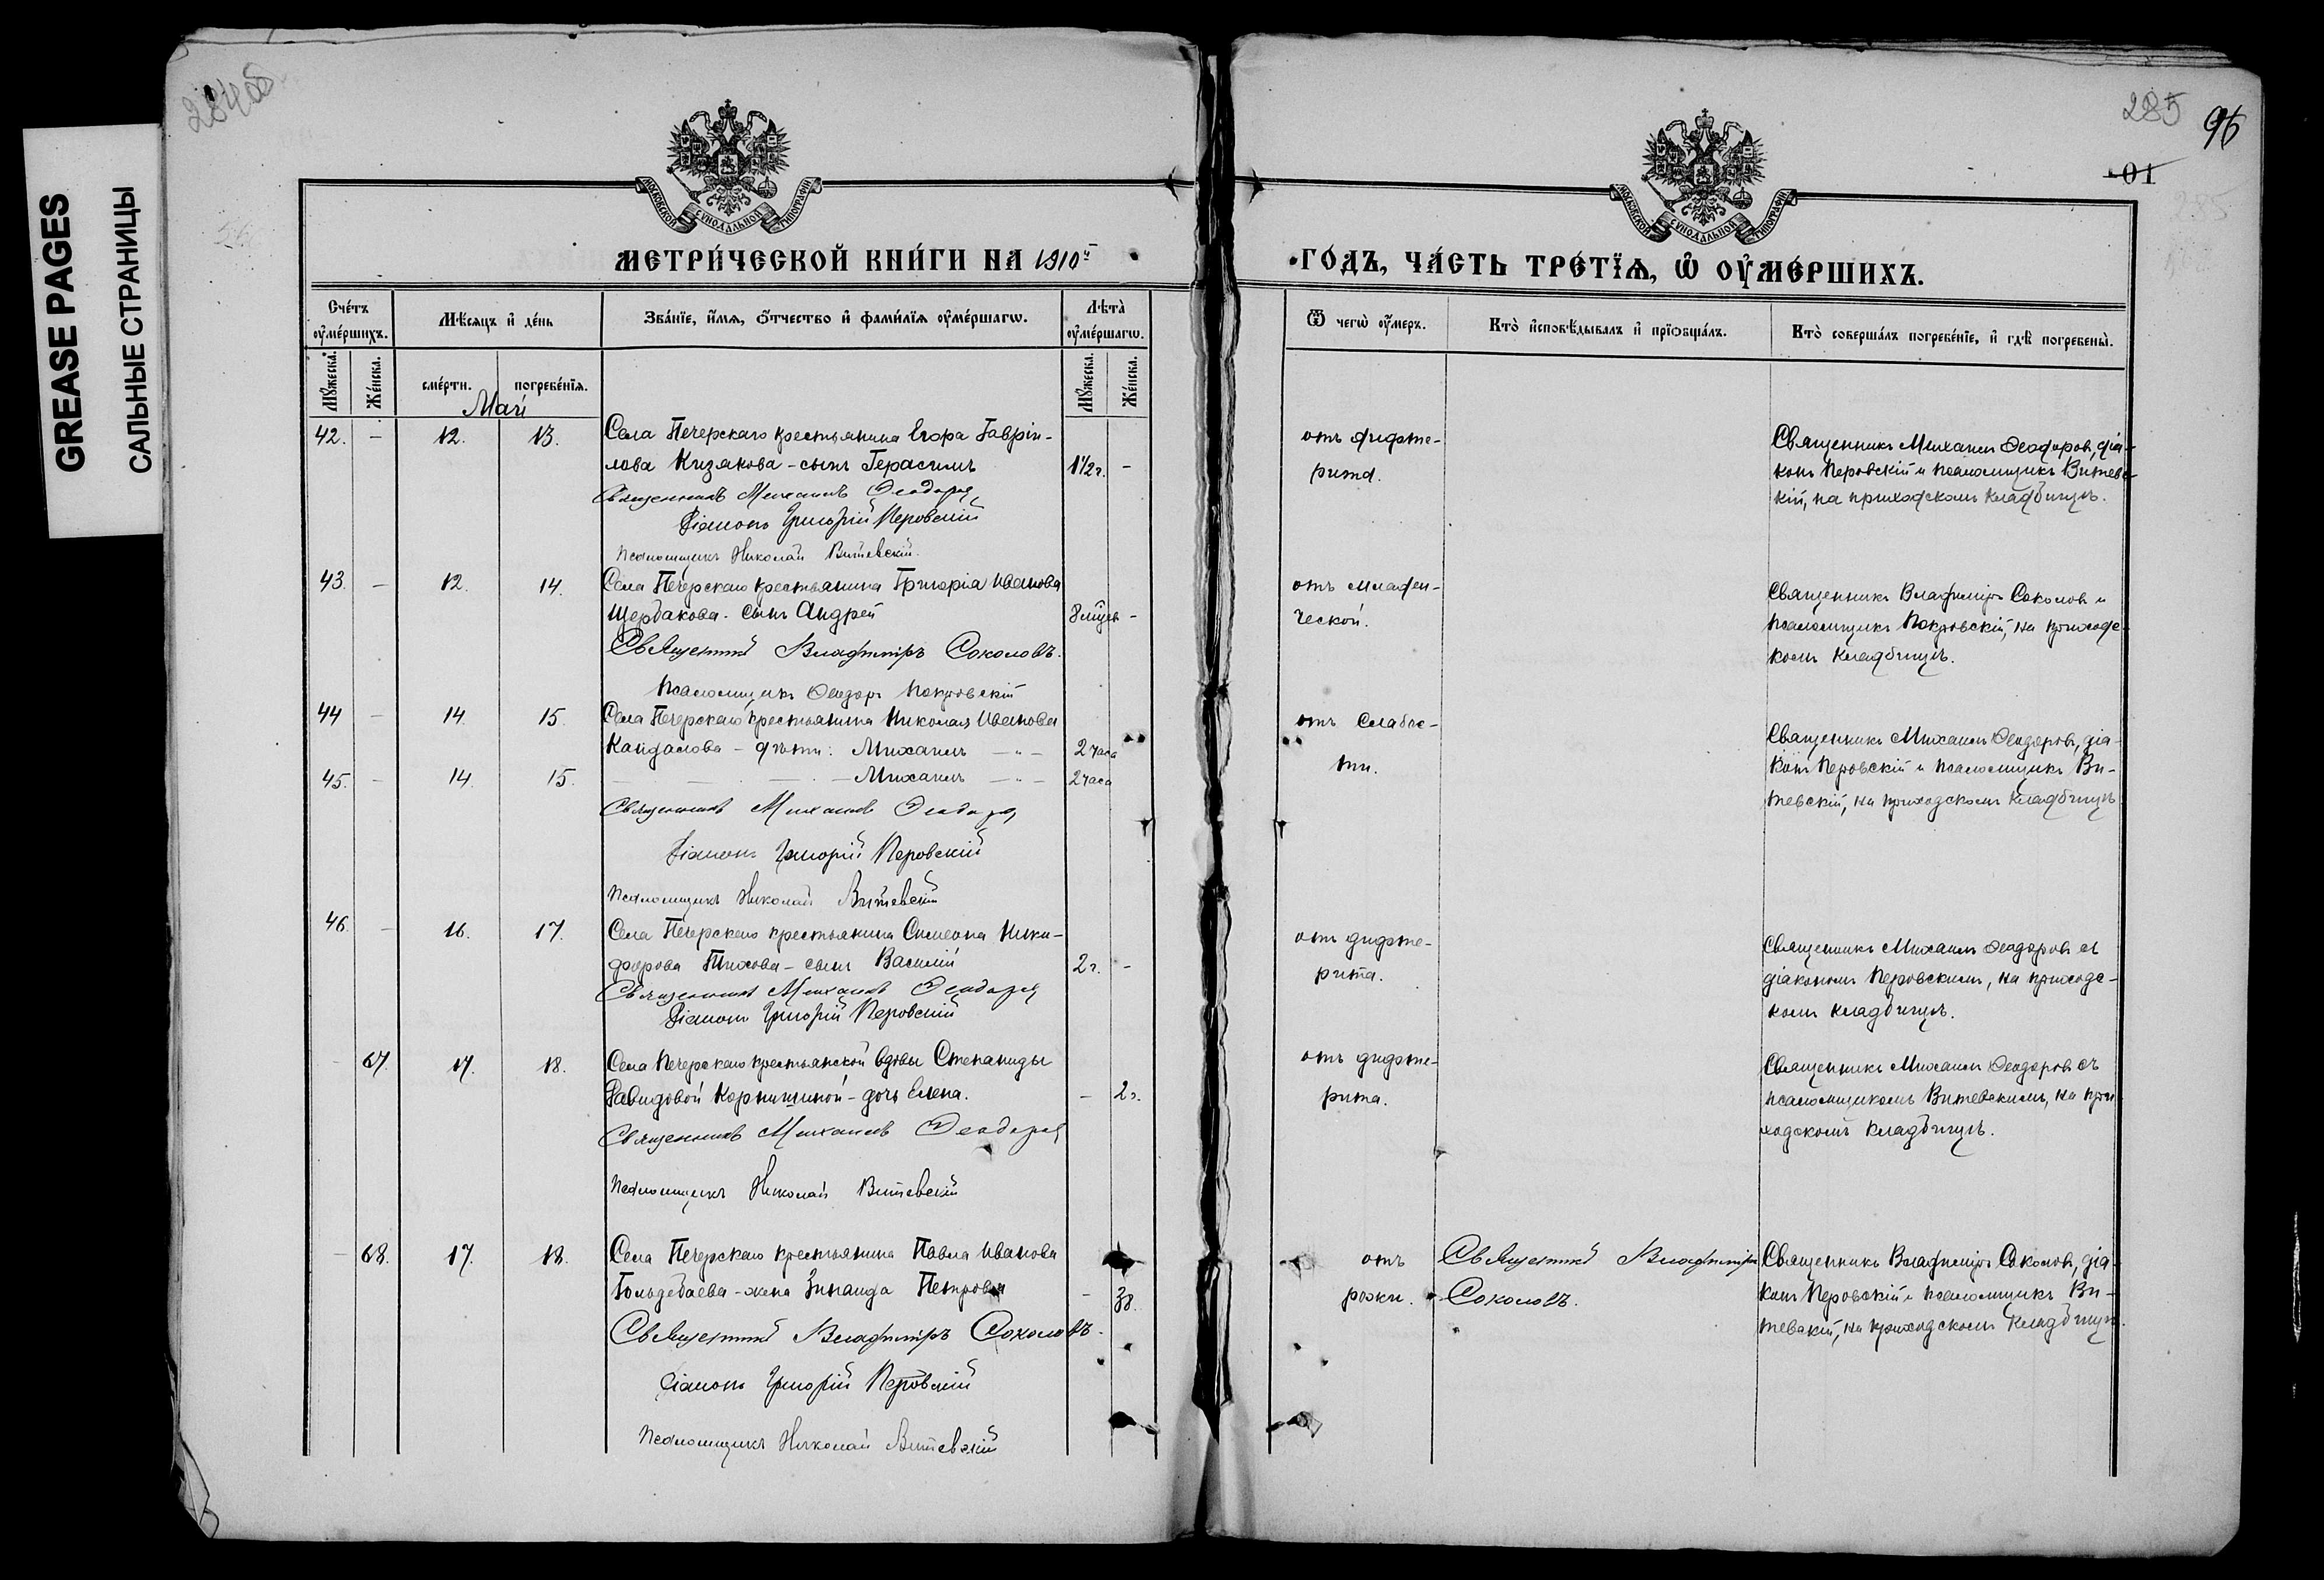 GREASE PAGES
САЛЬНЫЕ СТРАНИЦЫ
284об
285
96
01
МОСКОВСКОЙ СѴНОДАЛЬНОЙ ТИПОГРАФІИ
МОСКОВСКОЙ СѴНОДАЛЬНОЙ ТИПОГРАФІИ
МЕТРИ́ЧЕСКОЙ КНИ́ГИ НА 1910й
ГОДЪ, ЧА́СТЬ ТРЕ́ТЇѦ, Ѡ҆ ОУ҆МЕ́РШИХЪ.
Сче́тъ оу҆ме́ршихъ.
Мѣ́сяцъ и҆ де́нь
Зва́нїе, и҆́мѧ, ѻ҆́тчество и҆ фами́лїѧ оу҆ме́ршагѡ.
Лѣта̀ оу҆ме́ршагѡ.
Ѿ чегѡ̀ оу҆́меръ.
Кто̀ и҆сповѣ́дывалъ и҆ прїѻбща́лъ.
Кто̀ соверша́лъ погребе́нїе, и҆ гдѣ̀ погребены̀.
Мꙋ́жеска.
Же́нска.
сме́рти.
погребе́нїѧ.
Мꙋ́жеска.
Же́нска.
Май
42. - 12. 13. Села Печерскаго крестьянина Егора Гаврiи-
лова Кизякова - сынъ Герасимъ 1½ г. -
Священникъ Михаилъ Ѳеодоровъ
Дiаконъ Григорій Перовскій
Псаломщикъ Николай Витевскій.
отъ дифте-
рита.
Священникъ Михаилъ Ѳеодоровъ, дiа-
конъ Перовскій и псаломщикъ Витевс-
кій, на приходскомъ кладбищѣ.
43. - 12. 14. Села Печерскаго крестьянина Григорiа Иванова
Щербакова. сынъ Андрей 8 мѣсц. -
Священникъ Владимiръ Соколовъ.
Псаломщикъ Ѳеодоръ Покровскій
отъ младен-
ческой.
Священникъ Владимiръ Соколовъ и
псаломщикъ Покровскій, на приходс-
комъ кладбищѣ.
44 - 14. 15. Села Печерскаго крестьянина Николая Иванова
Кандалова - дѣти: Михаилъ - " - 2 часа
45. - 14. 15. - - - Михаилъ - " - 2 часа
Священникъ Михаилъ Ѳеодоровъ
Дiаконъ Григорій Перовскій
Псаломщикъ Николай Витевскій
отъ слабос-
ти.
Священникъ Михаилъ Ѳеодоровъ, дiа-
конъ Перовскій и псаломщикъ Ви-
тевскій, на приходскомъ кладбищѣ
46. - 16. 17. Села Печерскаго крестьянина Симеона Ники-
форова Тихова - сынъ Василій 2 г. -
Священникъ Михаилъ Ѳеодоровъ
Дiаконъ Григорій Перовскій
отъ дифте-
рита.
Священникъ Михаилъ Ѳеодоровъ съ
дiакономъ Перовскимъ, на приходс-
комъ кладбищѣ.
- 67. 17. 18. Села Печерскаго крестьянской вдовы Степаниды
Давидовой Корнишиной - дочь Елена. - 2 г.
Священникъ Михаилъ Ѳеодоровъ
Псаломщикъ Николай Витевскій
отъ дифте-
рита.
Священникъ Михаилъ Ѳеодоровъ съ
псаломщикомъ Витевскимъ, на при-
ходскомъ кладбищѣ.
- 68. 17. 18. Села Печерскаго крестьянина Павла Иванова
Гольдебаева - жена Зинаида Петрова - 38.
Священникъ Владимiръ Соколовъ.
Дiаконъ Григорій Перовскій
Псаломщикъ Николай Витевскій
отъ
рожи.
Священникъ Владимiръ
Соколовъ.
Священникъ Владимiръ Соколовъ, дiа-
конъ Перовскій и псаломщикъ Ви-
тевскій, на приходскомъ кладбищѣ.